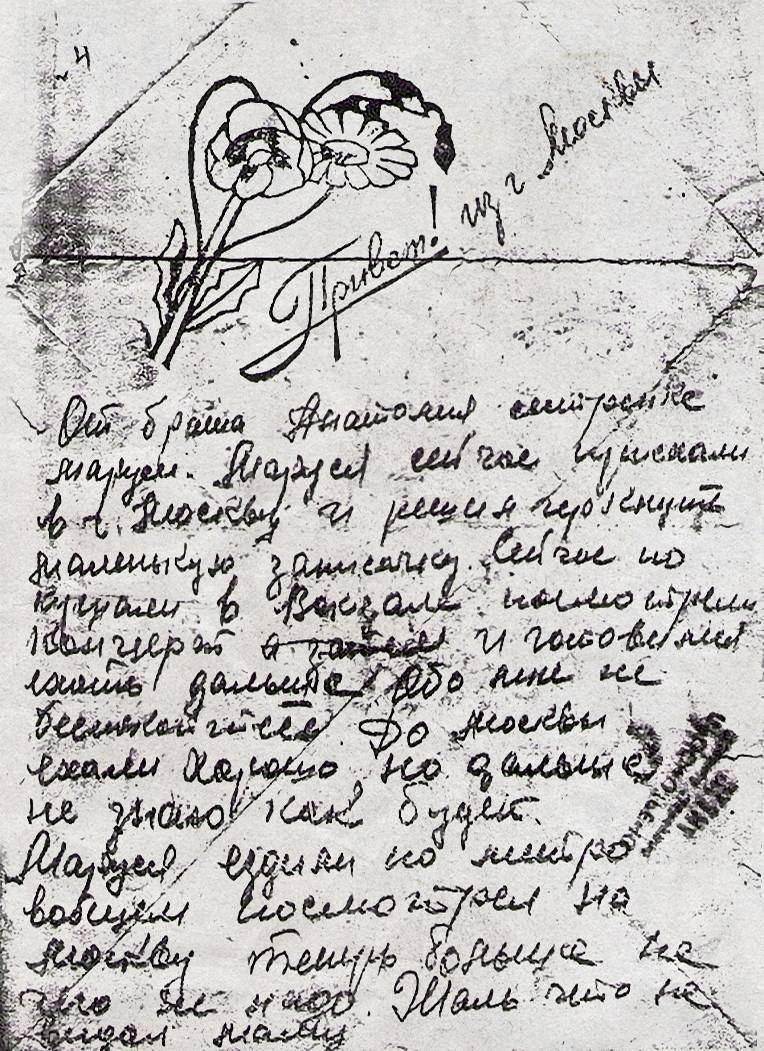 4
Привет! из г Москвы
От брата Анатолия сестренке
Маруси. Маруся сейчас приехали
в г. Москву и решил черкнуть
маленькую записочку. Сейчас по
кушали в Вокзале посмотрели
Концерт и готовимся
ехать дальше. Обо мне не
беспокойтесь. До Москвы
ехали хорошо но дальше
не знаю как будет.
Маруся ездили по метро
вобщем посмотрел на
Москву теперь больше не
чего не надо. Жаль что не
видал маму